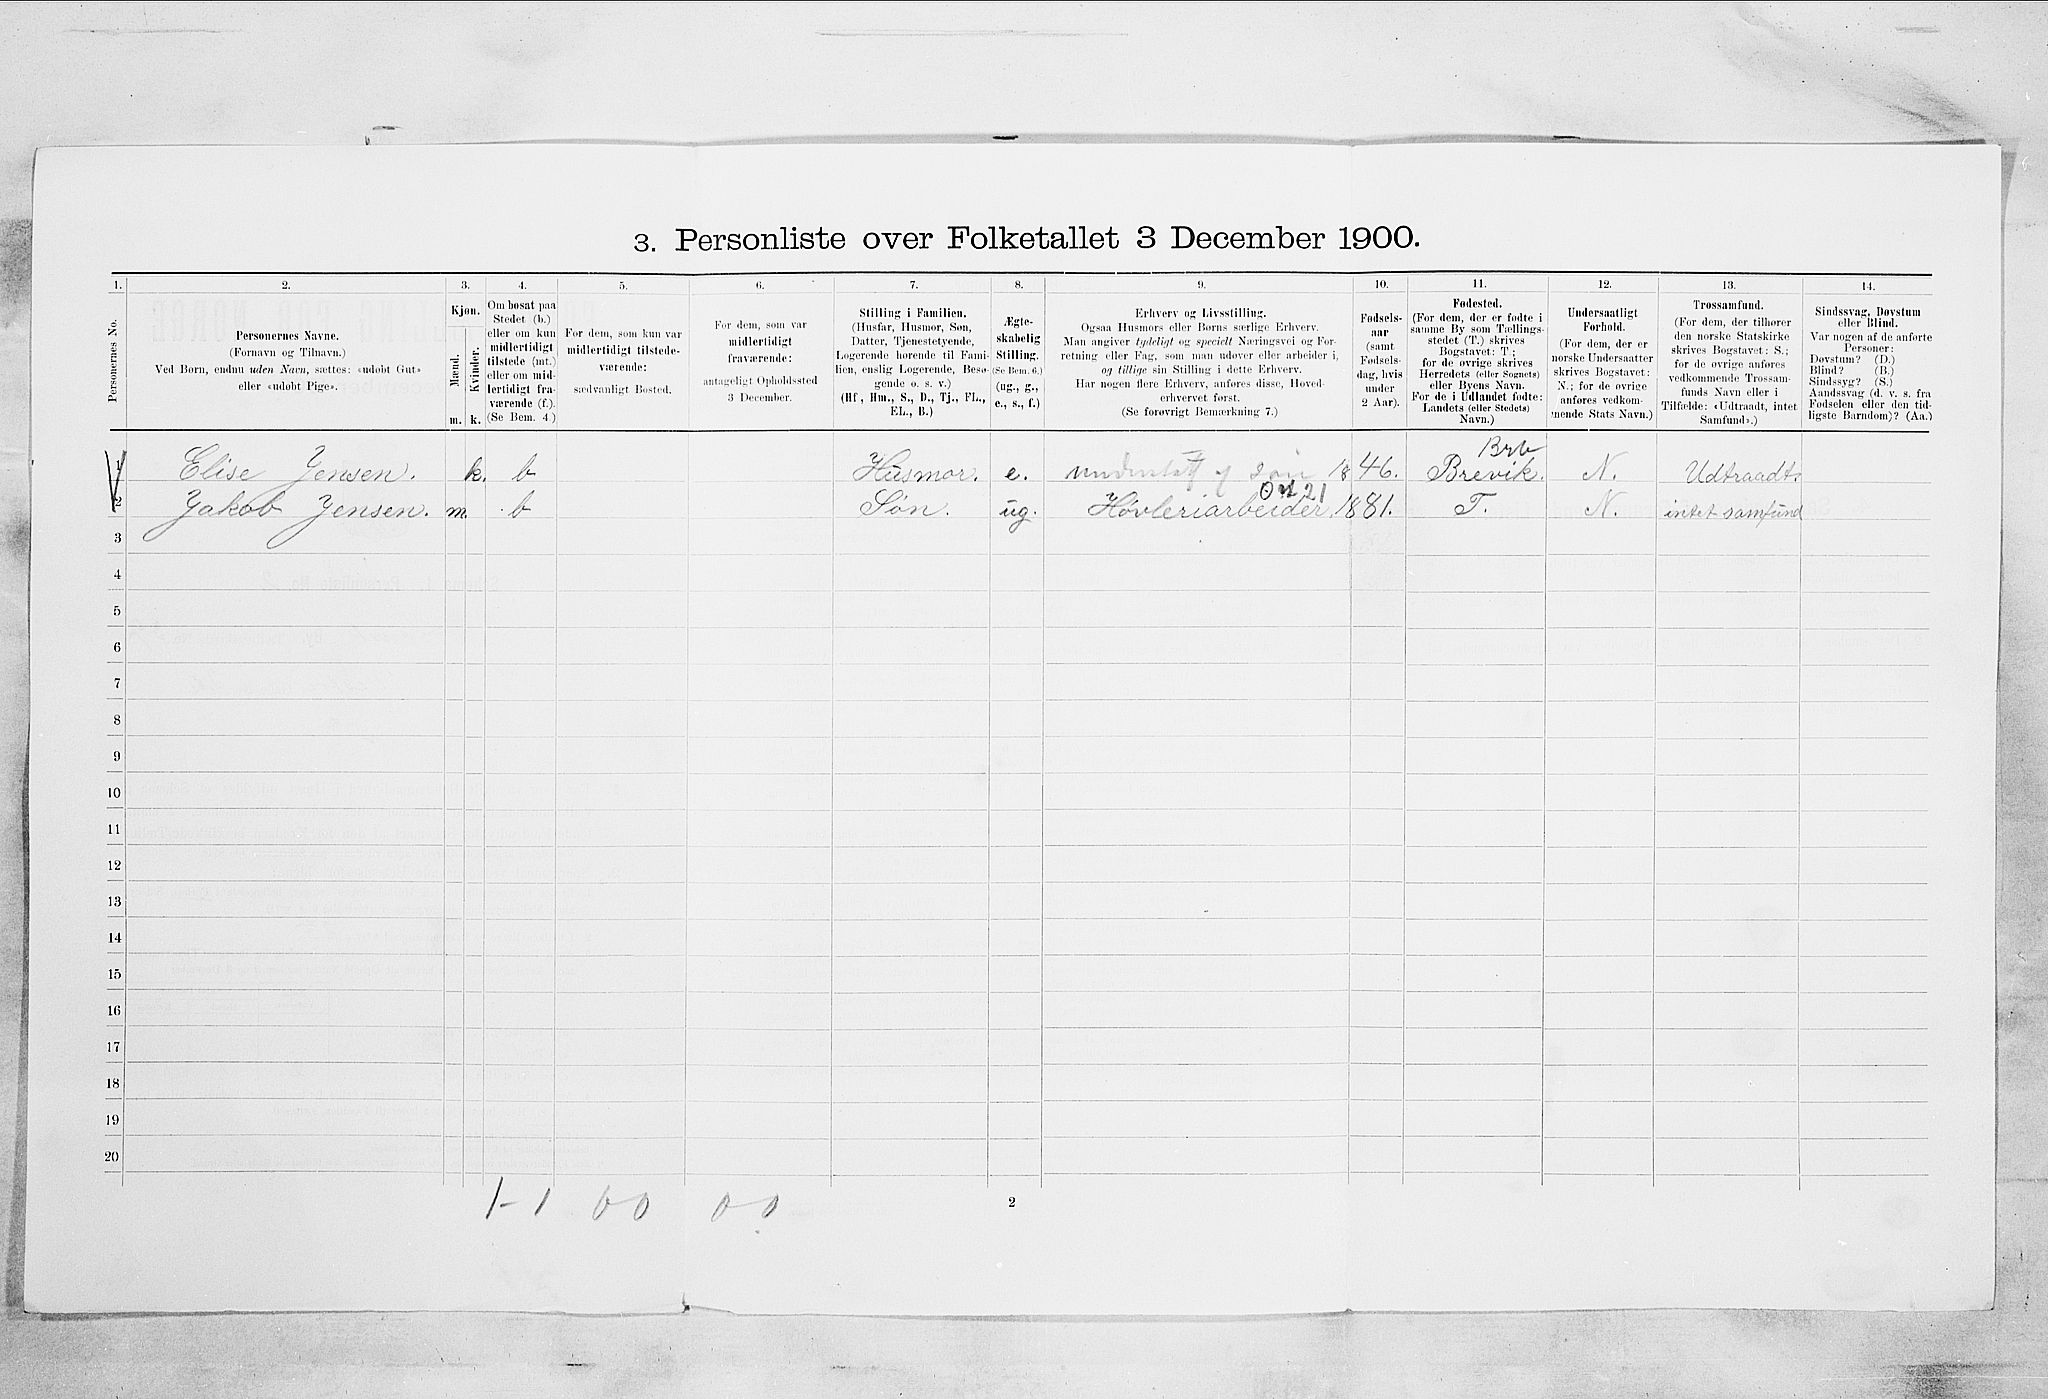 3. Personliste over Folketallet 3 December 1900.
1. 2. 3. 4. 5. 6. 7. 8. 9. 10. 11. 12. 13. 14.
Personernes No.
Personernes Navne.
(Fornavn og Tilnavn.)
Ved Børn, endnu uden Navn, sættes: «udøbt Gut»
eller «udøbt Pige».
Kjøn.
Mænd.
Kvinder.
m. k.
Om bosat paa
Stedet (b.)
eller om kun
midlertidigt
tilstede (mt.)
eller om mid-
lertidigt fra-
værende (f.).
(Se Bem. 4.)
For dem, som kun var
midlertidigt tilstede-
værende:
sædvanligt Bosted.
For dem, som var
midlertidigt
fraværende:
antageligt Opholdssted
3 December.
Stilling i Familien.
(Husfar, Husmor, Søn,
Datter, Tjenestetyende,
Logerende hørende til Fami-
lien, enslig Logerende, Besø-
gende o. s. v.)
(Hf., Hm., S., D., Tj., FL.,
EL., B.)
Ægte-
skabelig
Stilling.
(Se Bem. 6.)
(ug., g.,
e., s., f.)
Erhverv og Livsstilling.
Ogsaa Husmors eller Børns særlige Erhverv.
Man angiver tydeligt og specielt Næringsvei og For-
retning eller Fag, som man udøver eller arbeider i,
og tillige sin Stilling i dette Erhverv.
Har nogen flere Erhverv, anføres disse, Hoved-
erhvervet først.
(Se forøvrigt Bemærkning 7.)
Fødsels-
aar
(samt
Fødsels-
dag, hvis
under
2 Aar).
Fødested.
(For dem, der er fødte i
samme By som Tællings-
stedet (T.) skrives
Bogstavet: T.;
for de øvrige skrives
Herredets (eller Sognets)
eller Byens Navn.
For de i Udlandet fødte:
Landets (eller Stedets)
Navn.)
Undersaatligt
Forhold.
(For dem, der er
norske Undersaatter
skrives Bogstavet:
N.; for de øvrige
anføres vedkom-
mende Stats Navn.)
Trossamfund.
(For dem, der tilhører
den norske Statskirke
skrives Bogstavet: S.;
for de øvrige anføres
vedkommende Trossam-
funds Navn eller i
Tilfælde: «Udtraadt, intet
Samfund».)
Sindssvag, Døvstum
eller Blind.
Var nogen af de anførte
Personer:
Døvstum? (D.)
Blind? (B.)
Sindssyg? (S.)
Aandssvag (d. v. s. fra
Fødselen eller den tid-
ligste Barndom)? (Aa.)
Brb
1 Elise Jensen. k. b Husmor. e. understøt af Søn 1846. Brevik. N. Udtraadt.
21
2 Jakob Jensen. m. b Søn. ug. Høvleriarbeider. 1881. T. N. intet samfund
3
4
5
6
7
8
9
10
11
12
13
14
15
16
17
18
19
20
1-1 00 00
2